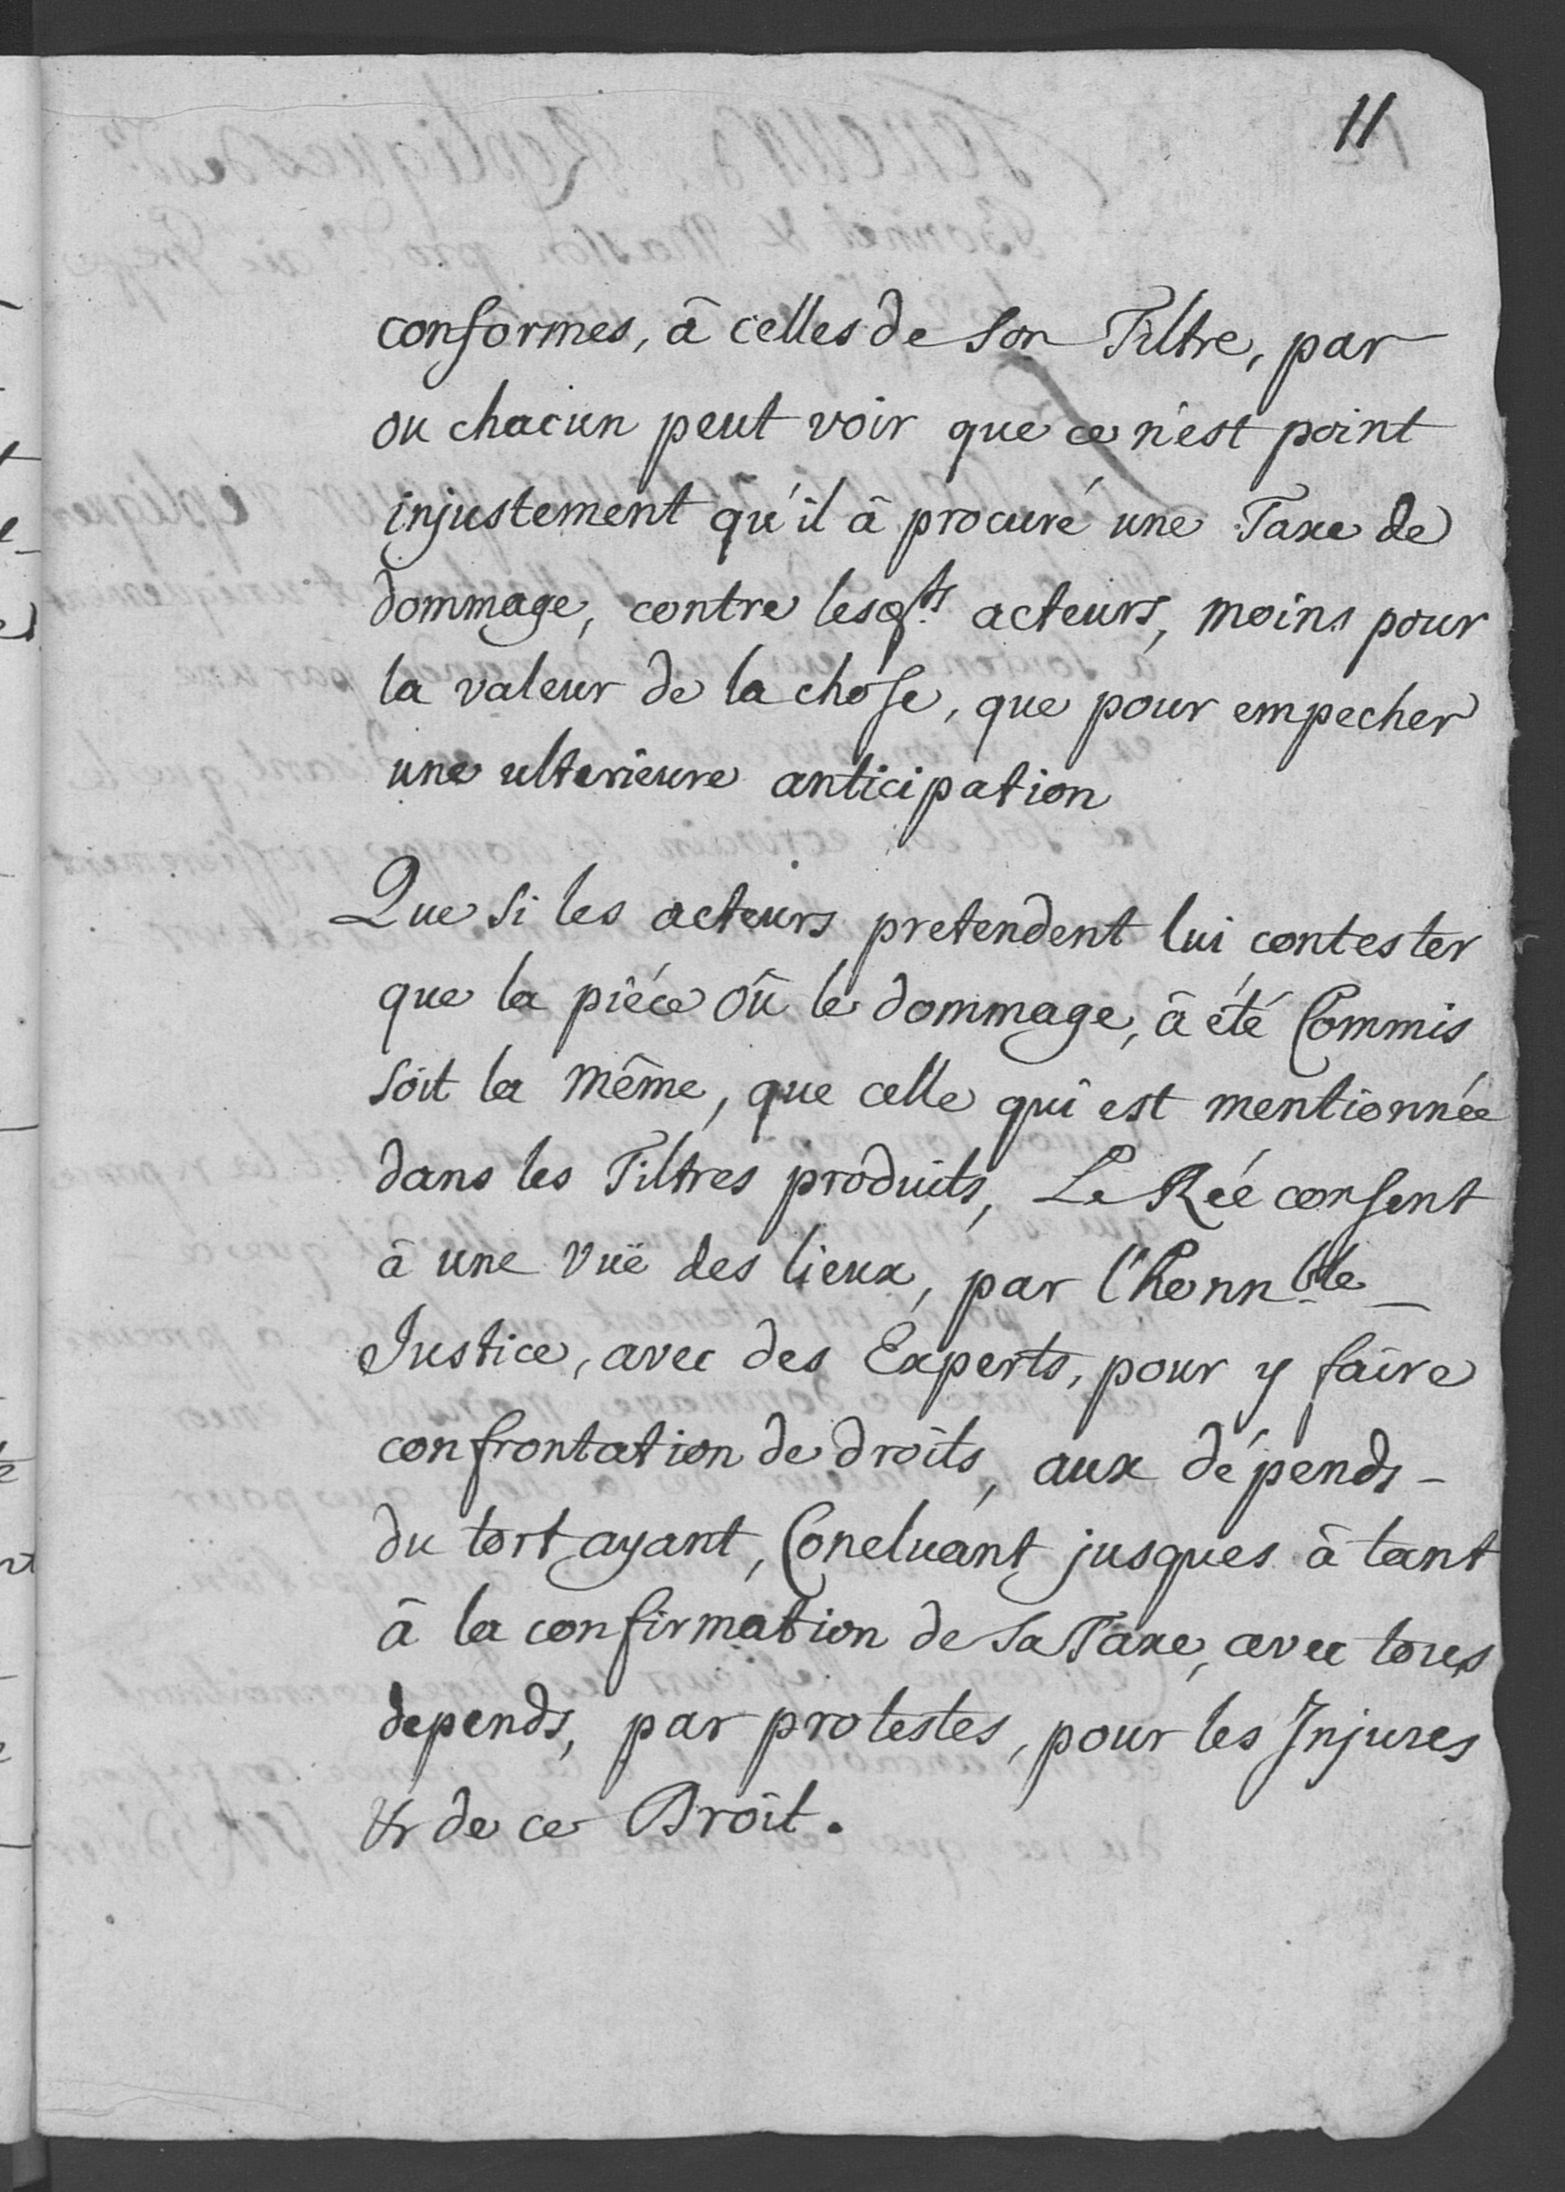 11
conformes, â celles de son Tiltre, par
ou chacun peut voir que ce n'est point
injustement qu'il â procuré une Taxe de
dommage, contre les acteurs, moins pour
la valeur de la chose, que pour empecher
une ulterieure anticipation
Que si les acteurs pretendent lui contester
que la piéce oû le dommage, â été Commis
soit la même, que celle qui est mentionnée
dans les Tiltres produits, Le Reé consent
â une vuë des lieux, par l'honnble
Justice, avec des Experts, pour y faire
confrontation de droits, aux dépends
du tort ayant, Concluant jusques â tant
â la confirmation de sa Taxe, avec tous
depends, par protestes, pour les Injures
& de ce Droit.